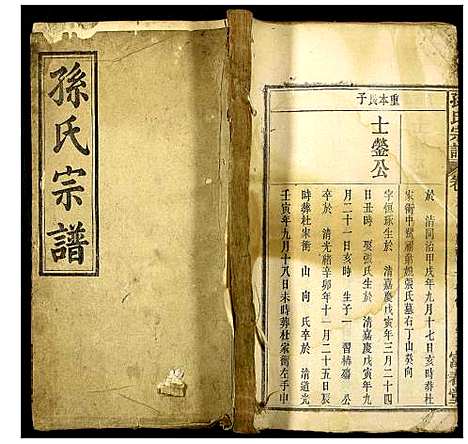 孫氏宗譜
孫氏宗譜
重本長子
士鎣公
字恒琢生於 清嘉慶戊寅年三月二十四
日丑時 娶張氏生於 清嘉慶戊寅年九
月二十一日亥時 生子一 習 公
卒於 清光緒辛卯年十一月二十五辰
時葬杜家衝 山 向 氏卒於 清道光
壬寅年九月十八日未時葬杜家衝左手申
於 清同治甲戌年九月十七日亥時葬杜
家衝中 張氏墓右丁山癸向
堂